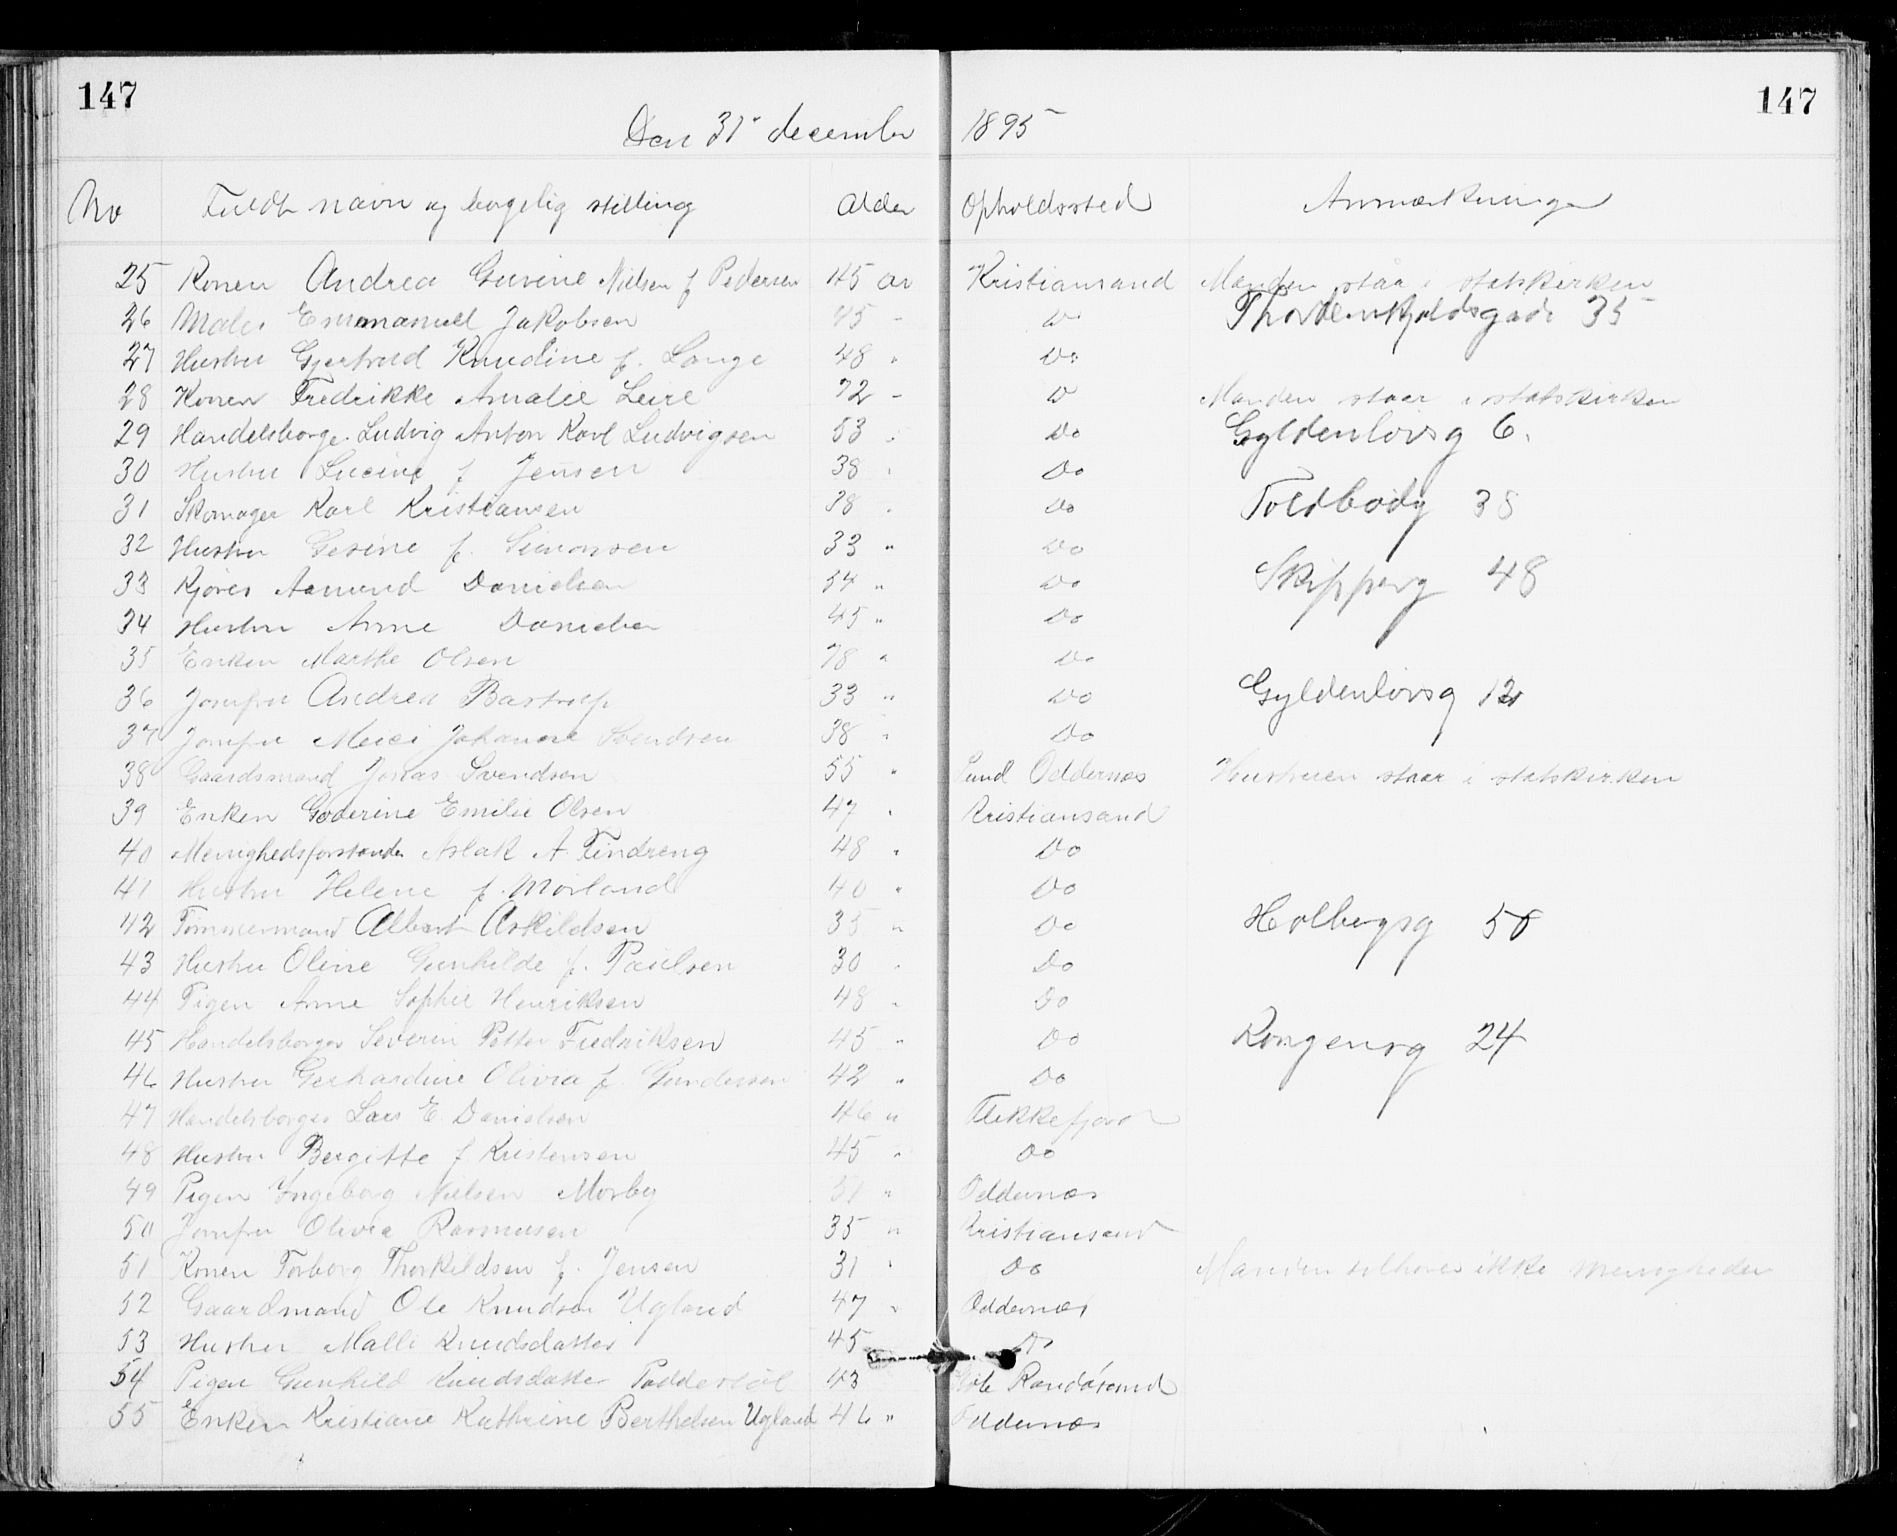 147 147
Den 31 december 1895
No Fuldt navn og borgelig stilling Alder Opholdssted Anmærkninger
25 Konen Andrea Gurine Nielsen f Pedersen 45 år Kristiansand Manden står i statskirken
26 Maler Emmanuel Jakobsen 45 - Do Thordenskjoldsgade 35
27 Hustru Gjertrud Knudine f. Lange 48 " Do
28 Konen Fredrikke Amalie Leire 72 - D Manden staar i statskirken
29 Handelsborge. Ludvig Anton Karl Ludvigsen 53 " Do Gyldenløvsg 6.
30 Hustru Lucine f Jensen 38 " Do
31 Skomager Karl Kristiansen 38 " Do Toldbodg 38
32 Hustru Gesine f. Simonsen 33 " Do
33 Kjører Aamund Danielsen 54 " Do Skipperg 48
34 Hustru Anne Danielsen 45 " Do
35 Enken Marthe Olsen 78 " Do
36 Jomfru Andrea Bastrup 33 " Do Gyldenløvsg 12
37 Jomfru Johanne Svendsen 38 " Do
38 Gaardsmand Jonas Svendsen 55 " Lund Oddernæs Hustruen staar i statskirken
39 Enken Emilie Olsen 47 " Kristiansand
40 Menighedsforstander Aslak A. Tindreng 48 " Do
41 Hustru Helene f. Mørland 40 " Do
42 Tømmermand Albert Askildsen 35 " Do Holbergsg 50
43 Hustru Oline Gunhilde f. Paulsen 30 " Do
44 Pigen Anne Sophie Henriksen 48 " Do
45 Handelsborger Severin Petter Fredriksen 45 " Do Kongensg 24
46 Hustru Gerhardine Olivia f. Gundersen 42 " Do
47 Handelsborger Lars E. Danielsen 46 " Flekkefjord
48 Hustru Bergitte f Kristensen 45 " Do
49 Pigen Ingeborg Nielsen Mosby 51 " Oddernæs
50 Jomfru Olivia Rasmussen 35 " Kristiansand
51 Konen Torborg Thorkildsen f. Jensen 31 " Do Manden tilhører ikke menigheden
52 Gaardmand Ole Knudsen Ugland 47 " Oddernæs
53 Hustru Malli Knudsdatter 45 Do
54 Pigen Gunhild Knudsdatter 43 Randøsund
55 Enken Kristiane Kathrine Berthelsen Ugland 46 " Oddernæs